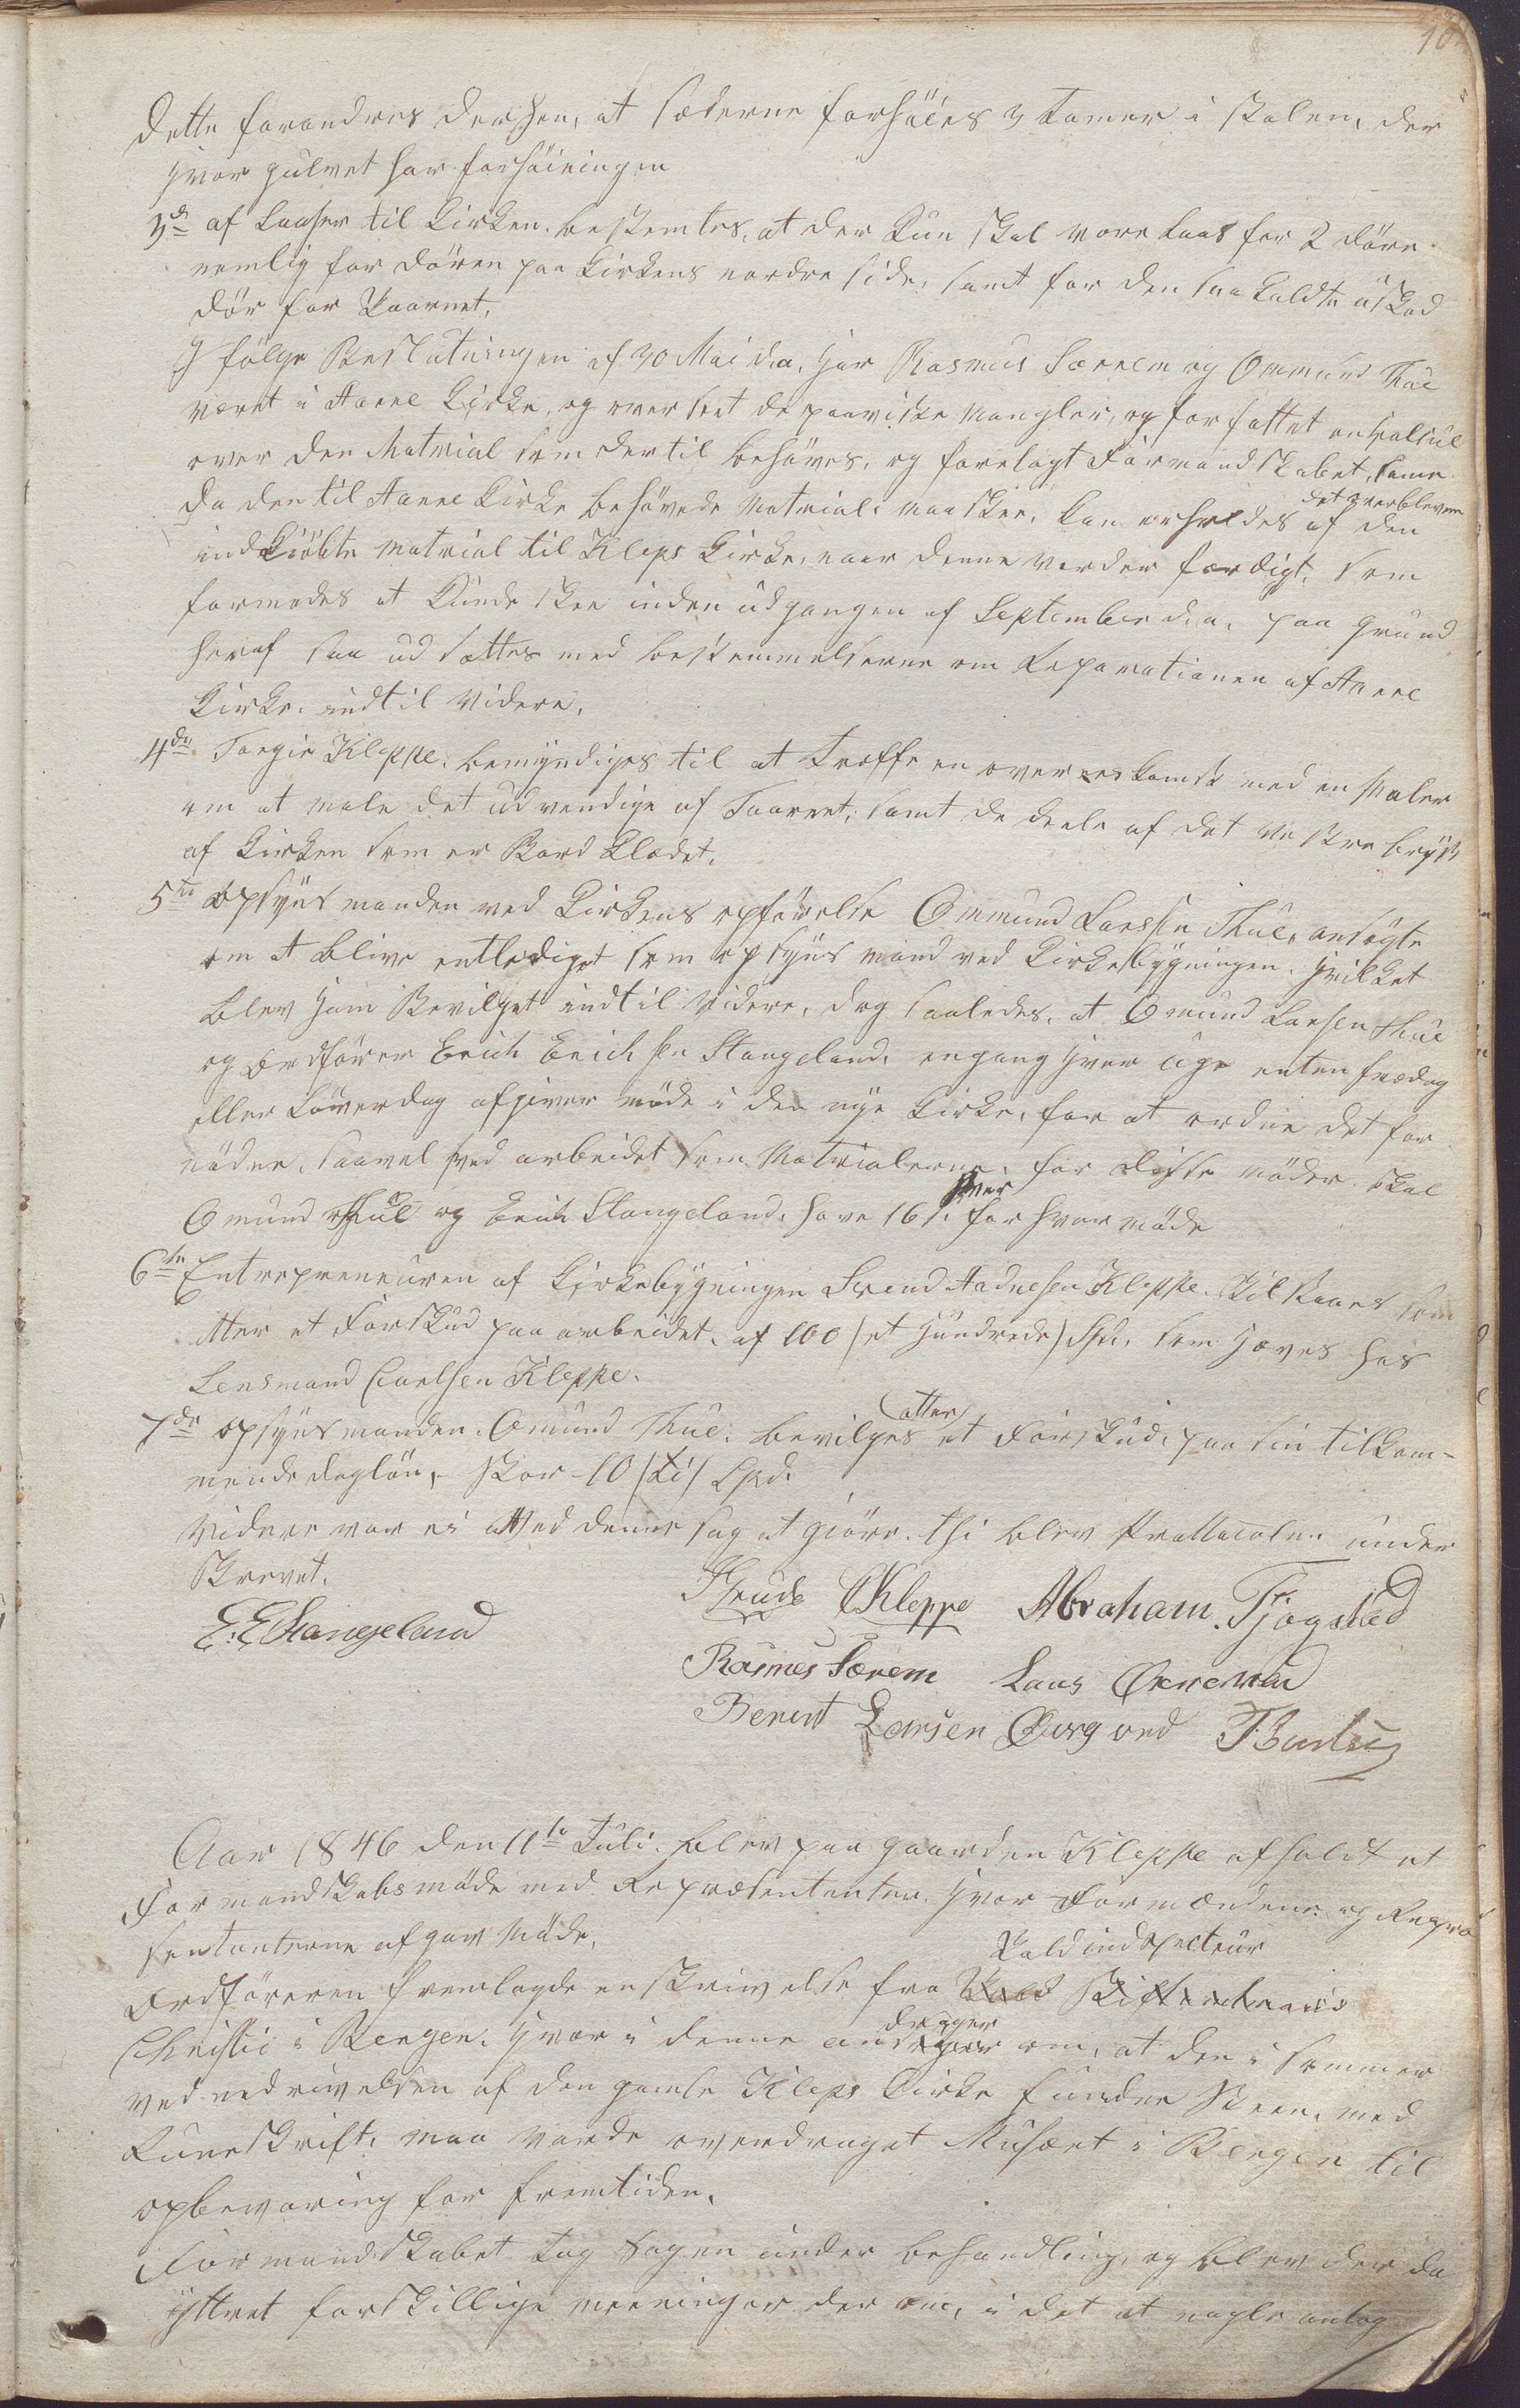 dette forandres derhen, at sæderne forhöies 3 tomer i stolen, der
hvor gulvet har forhöiningen
3d af Laaser til Kirken. bestemtes, at der kun skal være Laas for 2 döre
nemlig for dören paa Kirkens nordre side, samt for den saa kaldte
dör for Taarnet,
I fölge Beslutningen af 30 Mai d.a. har Rasmus Særrem og Ommund Thue
været i Aarre Kirke, og over seet de paaviste mangler, og for fattet en
over den Matrial som dertil behöves, og forelagt Formandskabet, same
da den til Aarre Kirke behövede Matrial maaskee, kan erholdes af den
det overblevne
indkiöbte matrial til Kleps Kirke, naar denne vorder færdigt, som
formodes at kunde skee inden udgangen af September d.a. paa grund
heraf saa ud sættes med bestemmelserne om Reparationen af Aarre
Kirke. indtil videre,
4de Torgier Kleppe. bemyndiges til at træffe en overenskomst med en Maler
om at male det udvendige af Taarnet, samt de deele af det vestre bryst
af Kirken som er Bord klædet,
5te opsyns manden ved Kirkens opförelse Ommund Larssen Thue, ansögte
om at blive entlediget som opsyns mand ved Kirkebygningen. hvilket
blev ham Bevilget indtil videre, dog saaledes. at Omund Larsen Thue
og Ordförer Erich Erichsen Stangeland. engang hver uge enten fredag
eller Löverdag afgiver möde i den nye Kirke, for at ordne det for
nödne, saavel ved arbeidet som Matrialerne, for disse möder skal
hver
Omund Thue og Erich Stangeland. have 16 s. for hver möde
6te Entrepreneuren af Kirkebygningen Svend Aadnesen Kleppe. tilstaaes som
atter et Forskud paa arbeidet. af 100 /et Hundrede/ Spd. som hæves hos
Lensmand Carlsen Kleppe.
atter
7de opsyns manden. Omund Thue. bevilges et Forskud. paa sin tilkom-
mende daglön, stor 10 /ti/ Spd.
videre var ei ved denne sag at giöre. thi blev Protocolen under
skrevet.
E. E Stangeland
Kleppe Abraham. Tjøgstad
Rasmus Særem Lars
Berent Larsen
Aar 1846 den 11te Juli. blev paa gaarden Kleppe afholdt et
Formandskabsmöde med Repræsentanter. hvor Formændene og Repræ
sentanterne afgav Möde,
Toldinspecteur
Ordföreren fremlagde en skrivelse fra
drager
Christie i Bergen. hvor i denne an om, at den i sommer
ved nedrivelsen af den gamle Kleps Kirke fundne Steen. med
Runeskrift, maa vorde overdraget Musæet i Bergen til
opbevaring for fremtiden.
Formandskabet tog sagen under behandling, og blev der da
yttret forskillige meeninger der om, i det at nogle antog